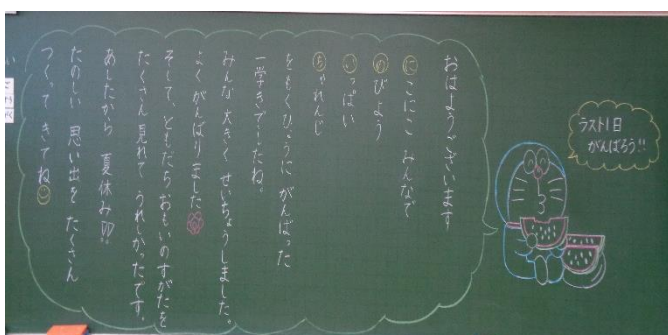 おはようございます
にこにこ みんなで
のびよう
いっぱい
ちゃれんじ
をもくひょうに がんばった
一学きでしたね。
みんな 大きく せいちょうしました。
よく がんばりました
そして、ともだちおもいのすがたを
たくさん 見れて うれしかったです。
あしたから 夏休み!!
たのしい 思い出を たくさん
つくって きてね
ラスト1日
がんばろう!!